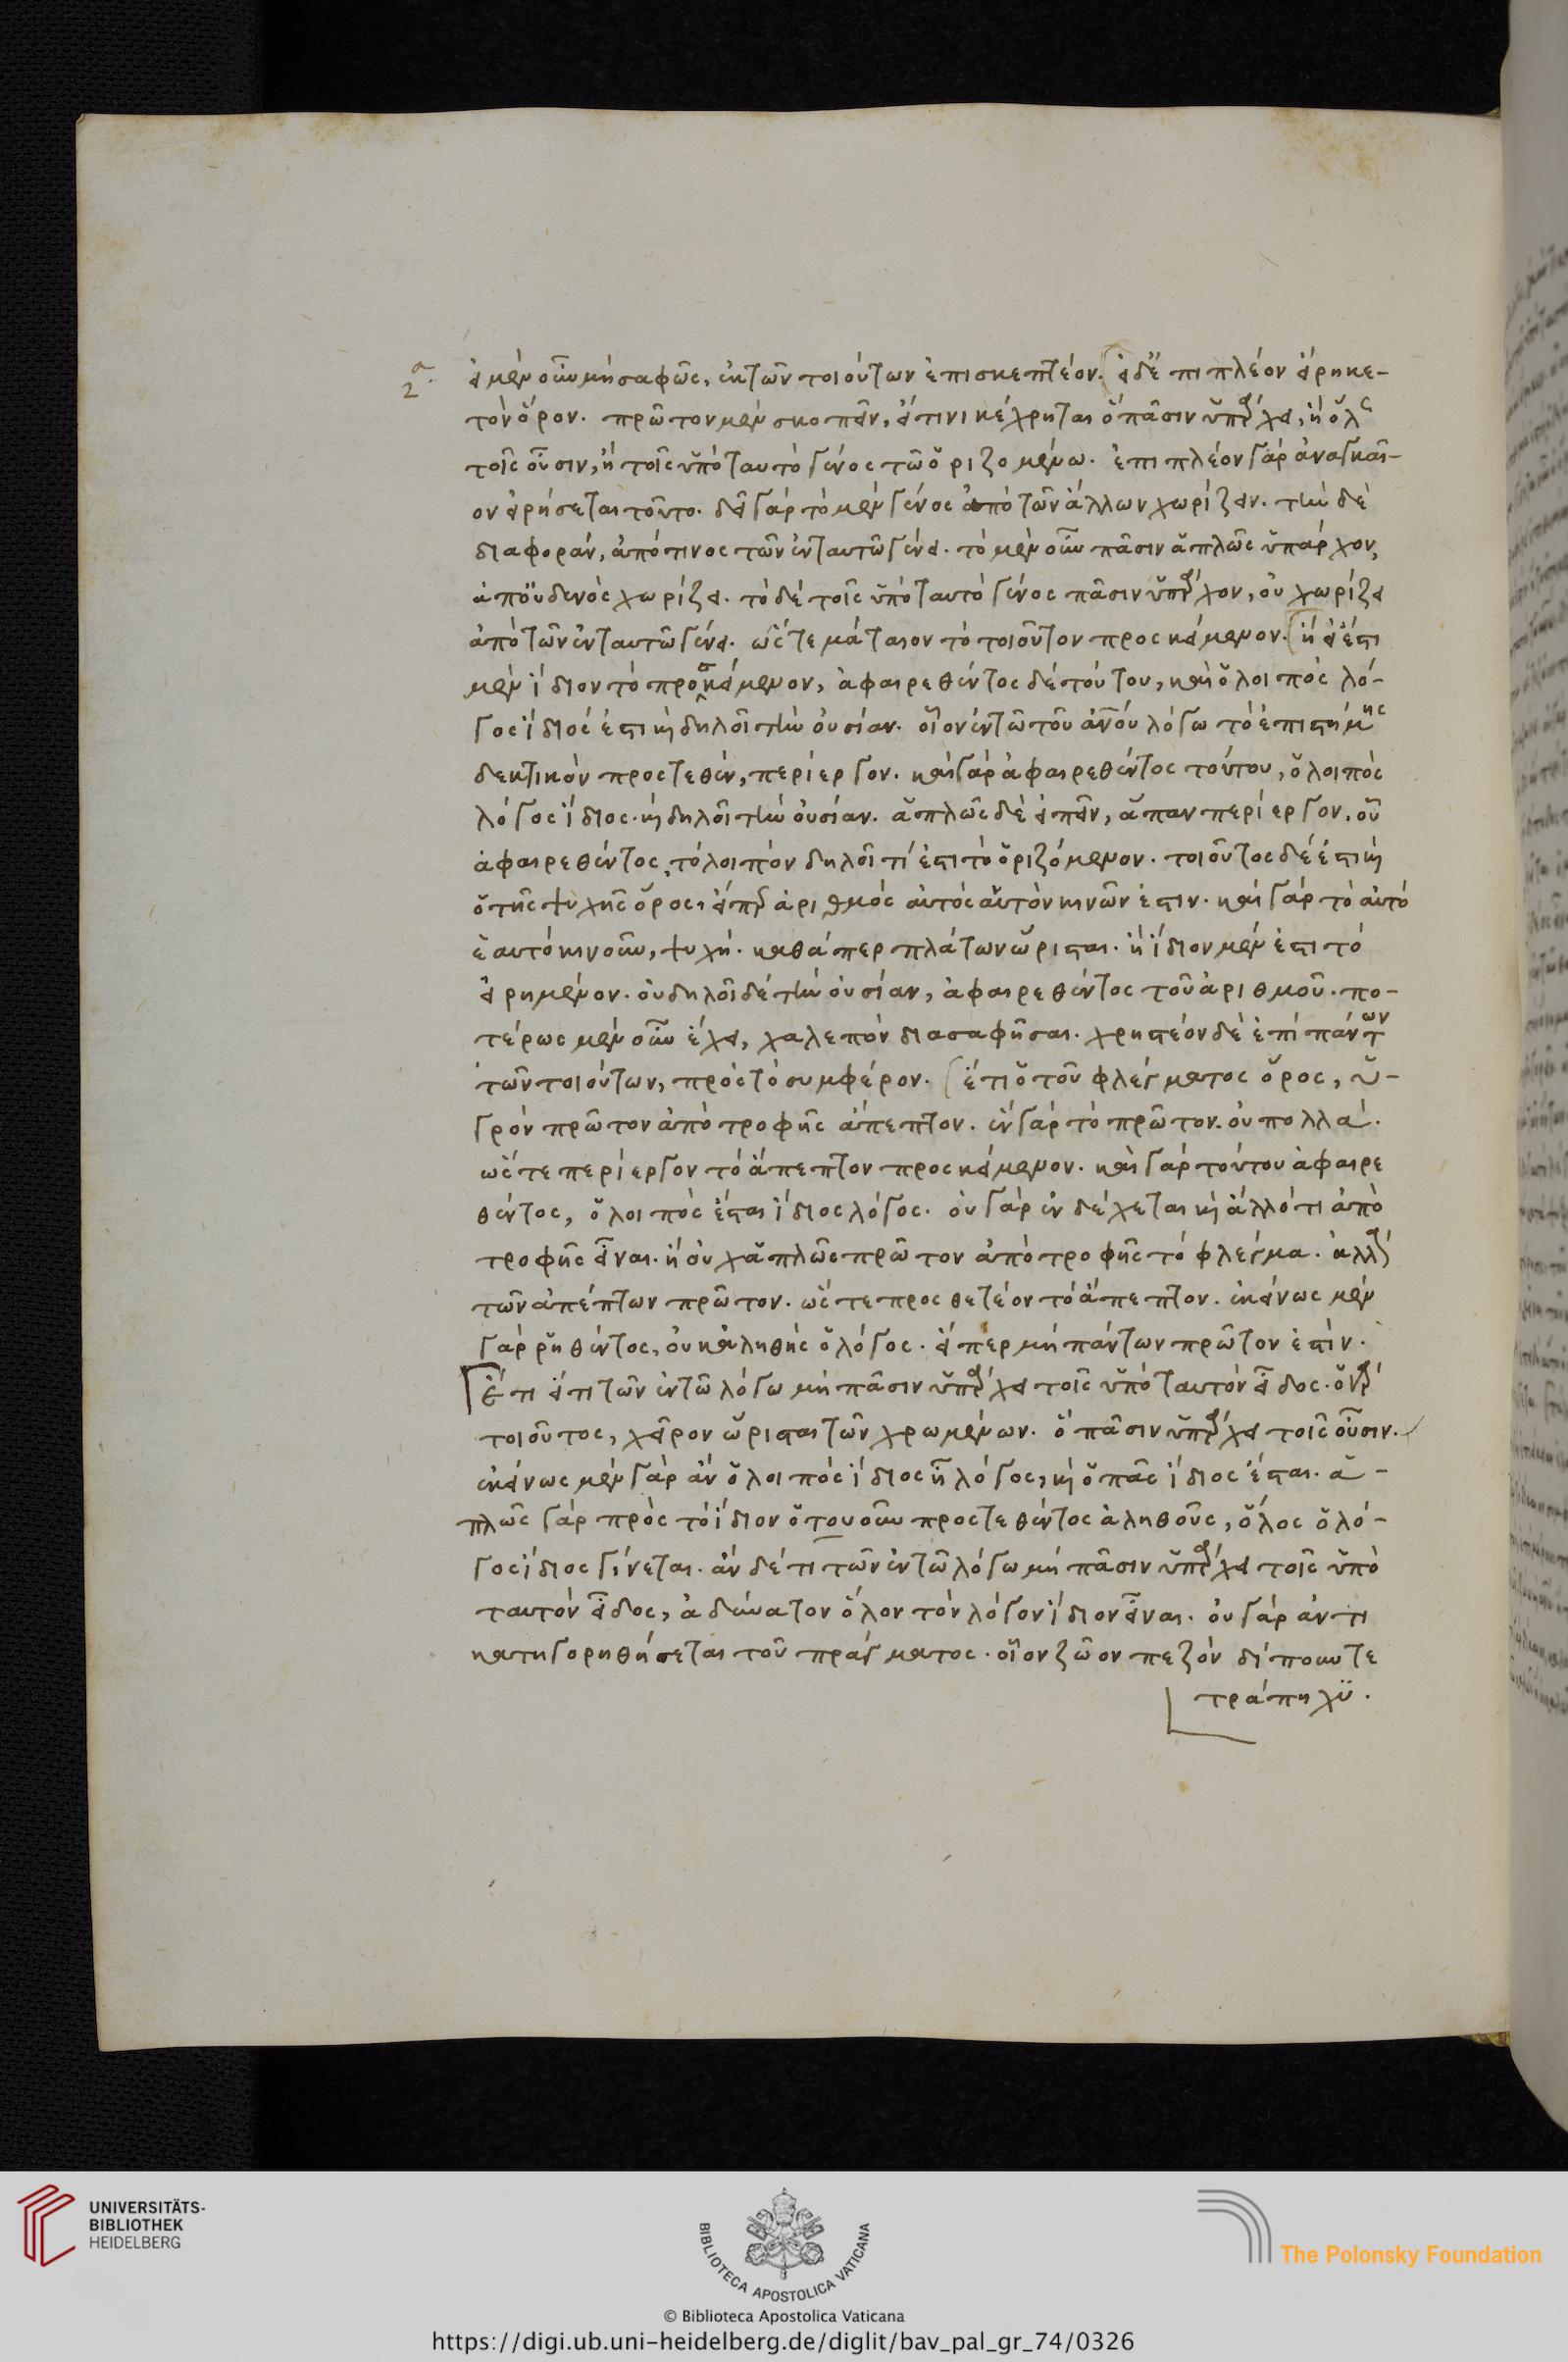 α
2
εἰ μὲν οὖν μὴ σαφῶς, ἐκ τῶν τοιούτων ἐπισκεπτέον. εἰ δ' ἐπιπλέον εἴρηκε-
τὸν ὅρον. πρῶτον μὲν σκοπεῖν, εἴ τινι κέχρηται ὃ πᾶσιν ὑπάρχει, ἢ ὅλς
τοῖς οὖσιν, ἢ τοῖς ὑπὸ ταυτὸ γένος τῶ ὁριζομένω. ἐπιπλέον γὰρ ἀναγκαῖ-
ον εἰρήσεται τοῦτο. δεῖ γὰρ τὸ μὲν γένος ἀπὸ τῶν ἄλλων χωρίζειν. τὴν δὲ
διαφοράν, ἀπό τινος τῶν ἐν ταυτῶ γένει. τὸ μὲν οὖν πᾶσιν ἁπλῶς ὑπάρχον,
ἀπ' οὐδενὸς χωρίζει. τὸ δὲ τοῖς ὑπὸ ταυτὸ γένος πᾶσιν ὑπάρχον, οὐ χωρίζει
ἀπὸ τῶν ἐν ταυτῶ γένει. ὥστε μάταιον τὸ τοιοῦτον προσκείμενον. ἢ εἰ ἔστι
μὲν ἴδιον τὸ προσκείμενον, ἀφαιρεθέντος δὲ τούτου, καὶ ὁ λοιπὸς λό-
γος ἴδιός ἐστι καὶ δηλοῖ τὴν οὐσίαν. οἷον ἐν τῶ τοῦ ἀνου λόγω τὸ ἐπιστήμης
δεκτικὸν προστεθὲν, περίεργον. καὶ γὰρ ἀφαιρεθέντος τούτου, ὁ λοιπὸς
λόγος ἴδιος. καὶ δηλοῖ τὴν οὐσίαν. ἁπλῶς δὲ εἰπεῖν, ἅπαν περίεργον, οὗ
ἀφαιρεθέντος, τὸ λοιπὸν δηλοῖ τί ἐστι τὸ ὁριζόμενον. τοιοῦτος δέ ἐστι καὶ
ὁ τῆς ψυχῆς ὅρος, εἴπερ ἀριθμὸς αὐτὸς αὑτὸν κινῶν ἐστιν. καὶ γὰρ τὸ αὐτὸ
ἑαυτὸ κινοῦν, ψυχή. καθάπερ πλάτων ὥρισται. ἢ ἴδιον μέν ἐστι τὸ
εἰρημένον. οὐ δηλοῖ δὲ τὴν οὐσίαν, ἀφαιρεθέντος τοῦ ἀριθμοῦ. πο-
τέρως μὲν οὖν ἔχει, χαλεπὸν διασαφῆσαι. χρηστέον δὲ ἐπὶ πάντων
τῶν τοιούτων, πρὸς τὸ συμφέρον. ἔτι ὁ τοῦ φλέγματος ὅρος, ὑ-
γρὸν πρῶτον ἀπὸ τροφῆς ἄπεπτον. ἓν γὰρ τὸ πρῶτον. οὐ πολλά.
ὥστε περίεργον τὸ ἄπεπτον προσκείμενον. καὶ γὰρ τούτου ἀφαιρε
θέντος, ὁ λοιπὸς ἔσται ἴδιος λόγος. οὐ γὰρ ἐνδέχεται καὶ ἄλλό τι ἀπὸ
τροφῆς εἶναι. ἢ οὐχ ἁπλῶς πρῶτον ἀπὸ τροφῆς τὸ φλέγμα. ἀλλὰ
τῶν ἀπέπτων πρῶτον. ὥστε προσθετέον τὸ ἄπεπτον. ἐκείνως μὲν
γὰρ ῥηθέντος, οὐκ ἀληθὴς ὁ λόγος. εἴπερ μὴ πάντων πρῶτον ἐστὶν.
Ἔτι εἴ τι τῶν ἐν τῶ λόγω μὴ πᾶσιν ὑπάρχει τοῖς ὑπὸ ταυτὸν εἶδος. ὁ γὰρ
τοιοῦτος, χεῖρον ὥρισται τῶν χρωμένων. ὃ πᾶσιν ὑπάρχει τοῖς οὖσιν.
ἐκείνως μὲν γὰρ ἂν ὁ λοιπὸς ἴδιος ἦ λόγος, καὶ ὁ πᾶς ἴδιος ἔσται. ἁ-
πλῶς γὰρ πρὸς τὸ ἴδιον ὁτουοῦν προστεθέντος ἀληθοῦς, ὅλος ὁ λό-
γος ἴδιος γίνεται. ἂν δέ τι τῶν ἐν τῶ λόγω μὴ πᾶσιν ὑπάρχει τοῖς ὑπὸ
ταυτὸν εἶδος, ἀδύνατον ὅλον τὸν λόγον ἴδιον εἶναι. οὐ γὰρ ἀντι
κατηγορηθήσεται τοῦ πράγματος. οἷον ζῶον πεζὸν δίπουν τε
τράπηχυ.
UNIVERSITÄTS-
BIBLIOTHEK
HEIDELBERG
BIBLIOTECA APOSTOLICA VATICANA
The Polonsky Foundation
© Biblioteca Apostolica Vaticana
https://digi.ub.uni-heidelberg.de/diglit/bav_pal_gr_74/0326